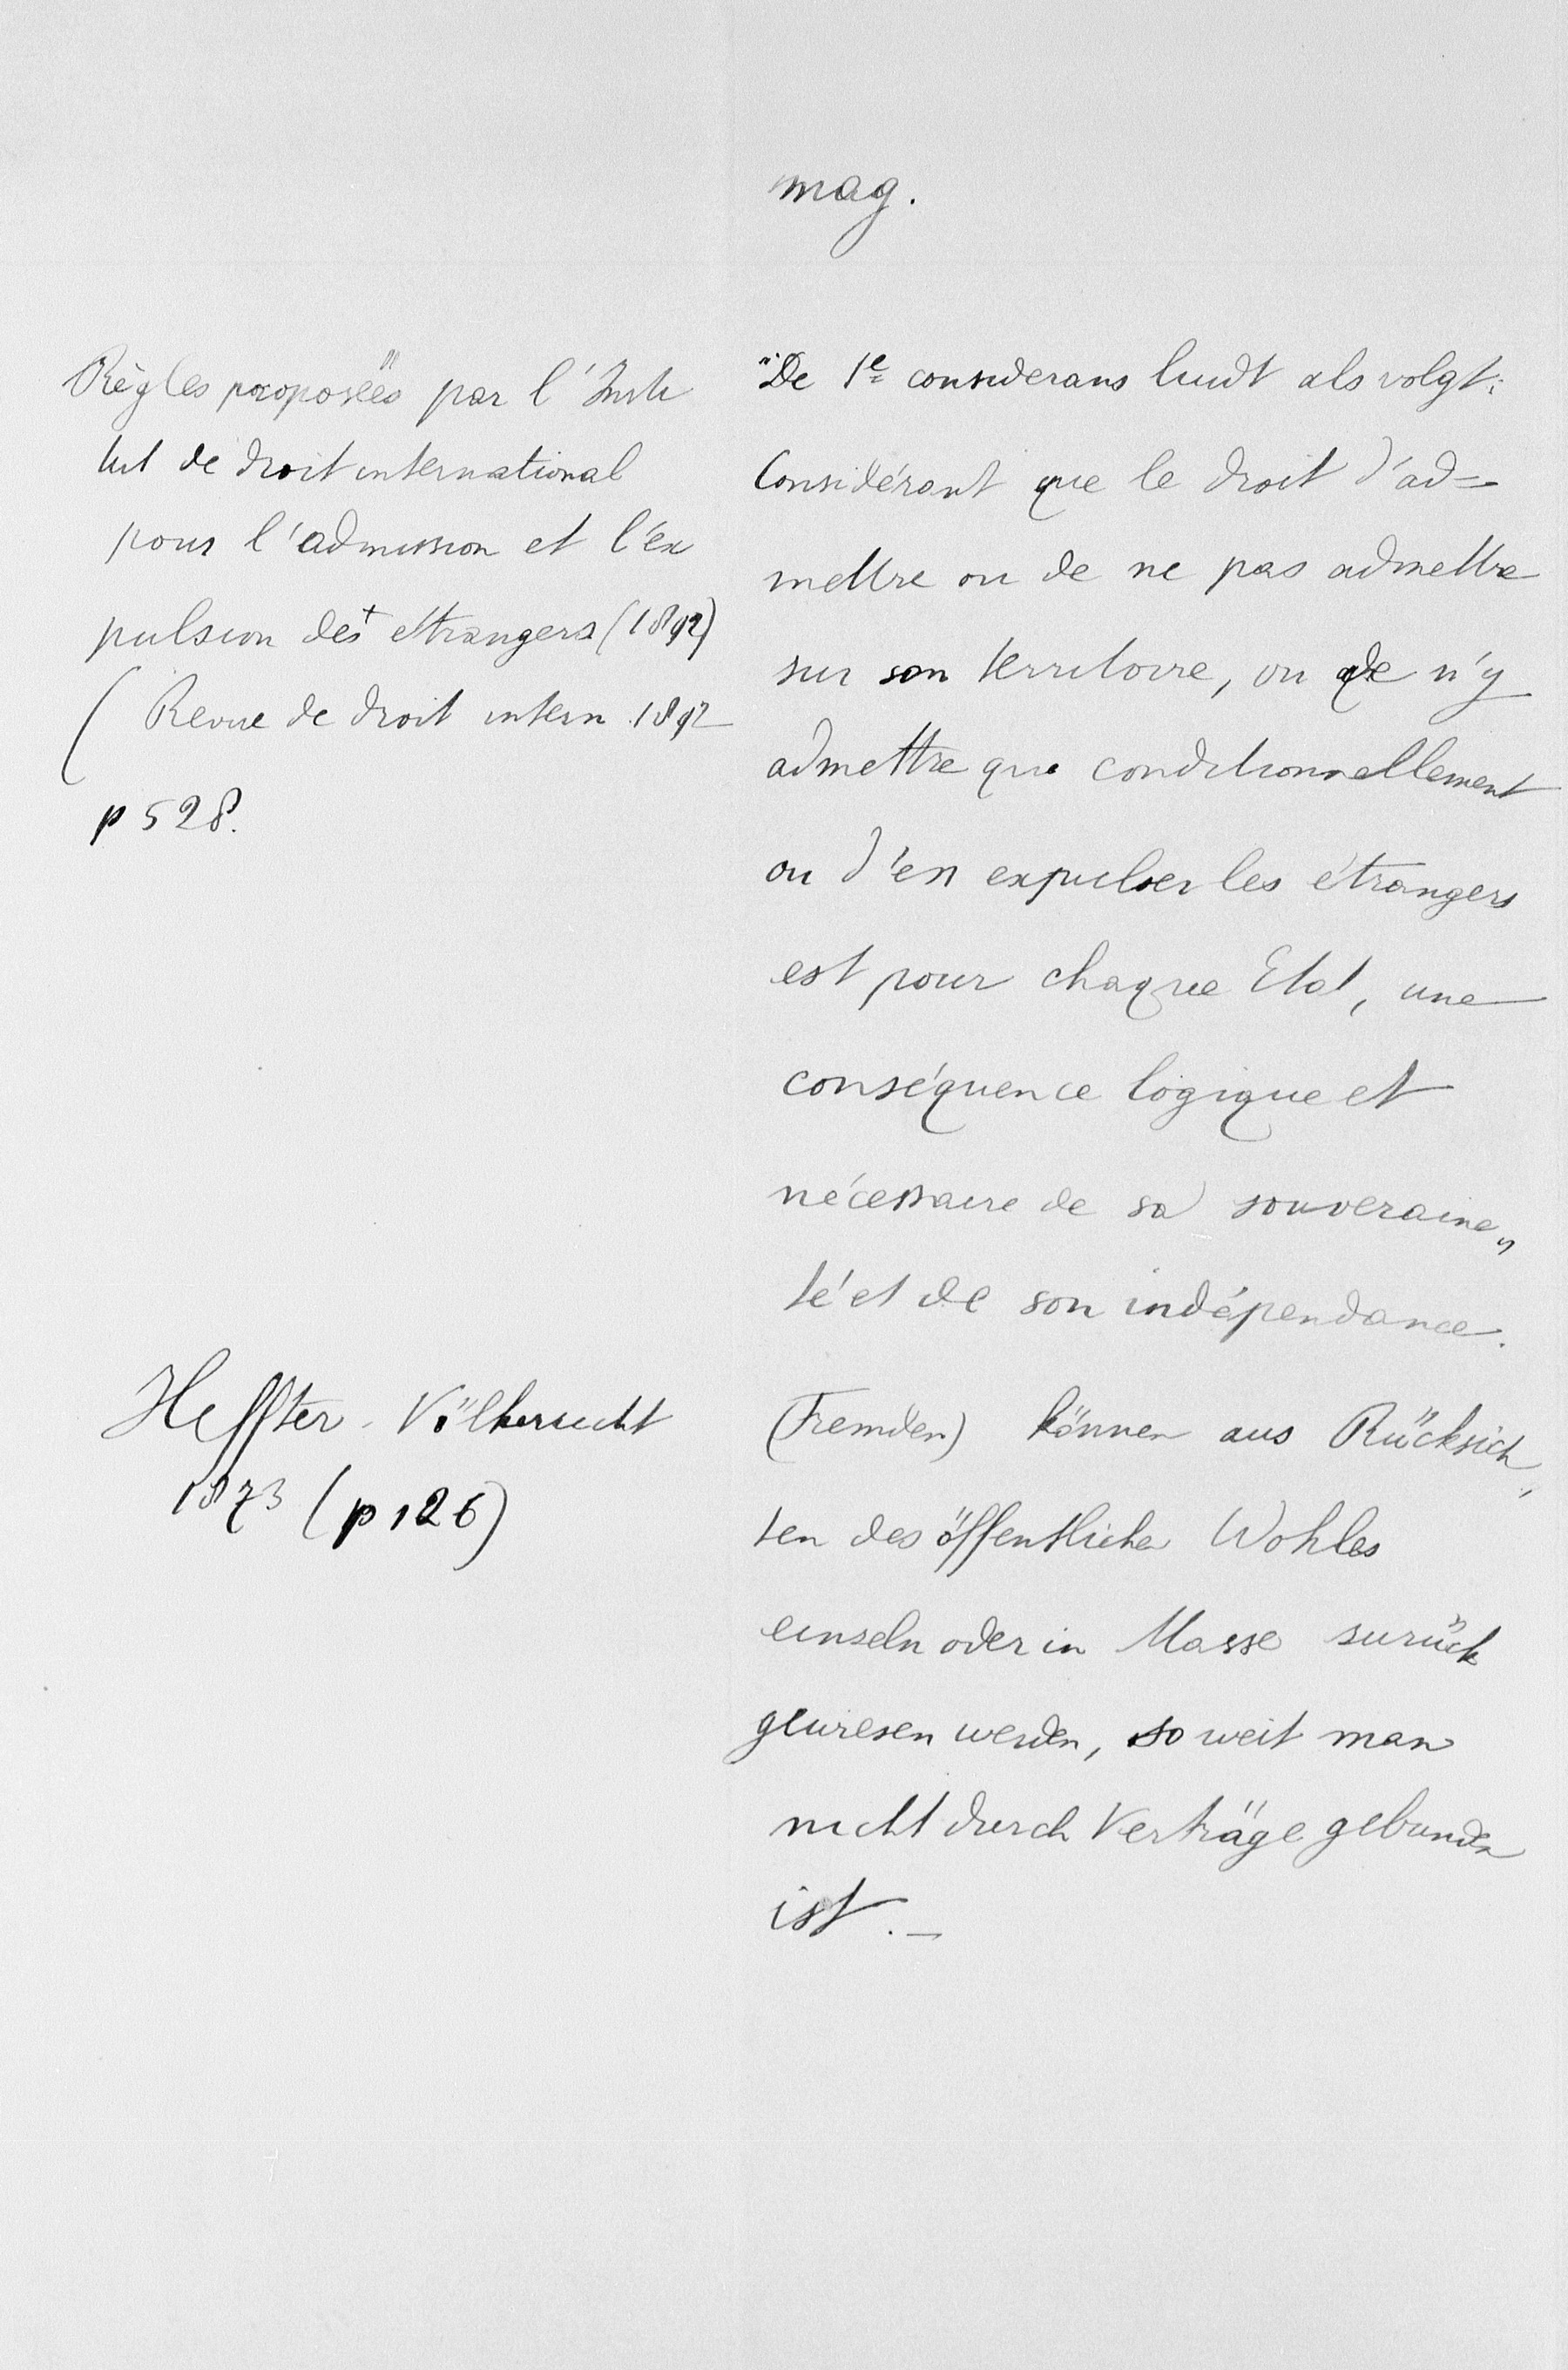 mag.
Règles proposées par l'Insti
tut de droit international
pour l'admission et l'ex
pulsion des etrangers (1892)
( Revue de droit intern 1892
p 528.
"De 1e considerans luidt als volgt:
Considérant que le droit d'ad=
mettre ou de ne pas admettre
sur son territoire, ou de n'y
admettre que conditionnellement
ou d'en expulser les étrangers
est pour chaque Etat, une
conséquence logique et
nécessaire de sa souveraine„
té et de son indépendance.
Heffter. Völkerrecht
1873 (p 126)
(Fremden) können aus Rücksich,
ten des öffentlichen Wohles
einseln oder in Masse surück
gewiesen werden, so weit man
nicht durch Verträge gebunden
ist._